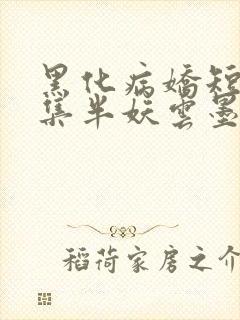 黑化病嬌短
集半妖雲墨
稻荷家房之介